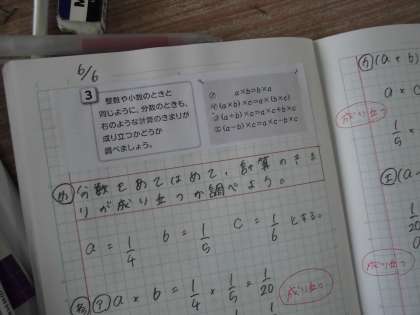 6/6
3
整数や小数のときと
同じように、分数のときも、
右のような計算のきまりが
成り立つかどうか
調べましょう。
㋐ a×b=b×a
㋑(a×b)×c=a×(b×c)
㋒(a+b)×c=a×c+b×c
㋓(a-b)×c=a×c-b×c
め 分数をあてはめて、計算のきま
りが成り立つか調べよう。
a = 1/4 b = 1/5 c = 1/6 とする。
㋐ a × b = 1/4 × 1/5 = 1/20
成り立つ
(a × b)
a × c
成り立つ
㋓(a-